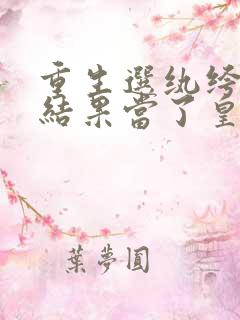 重生選纨绔
結果當了皇
葉夢圓